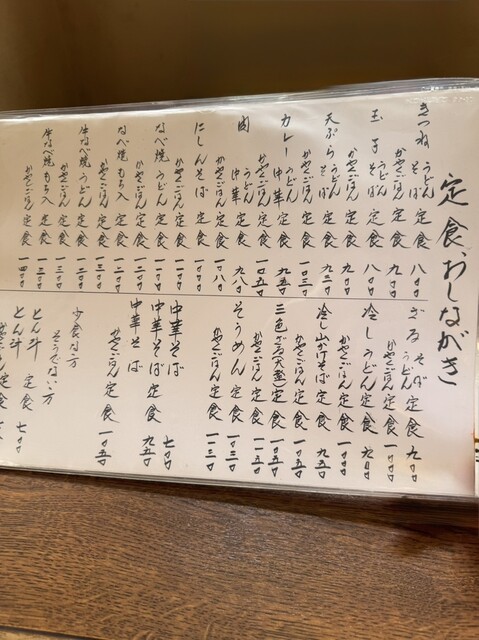 定食おしながき
きつね うどん そば 定食 八〇〇
かやくごはん 定食 九〇〇
玉子 うどん そば 定食 八〇〇
かやくごはん 定食 九〇〇
天ぷら うどん そば 定食 九三〇
かやくごはん 定食 一〇三〇
カレー うどん 中華 定食 九五〇
かやくごはん 定食 一〇五〇
肉 うどん 中華 定食 九八〇
かやくごはん 定食 一〇八〇
にしんそば 定食 一〇〇〇
かやくごはん 定食 一一〇〇
なべ焼 うどん 定食 一一〇〇
かやくごはん 定食 一二〇〇
なべ焼 もち入 定食 一二〇〇
かやくごはん 定食 一三〇〇
牛なべ焼 うどん 定食 一二〇〇
かやくごはん 定食 一三〇〇
牛なべ焼 もち入 定食 一三〇〇
かやくごはん 定食 一四〇〇
ざる そば うどん 定食 九〇〇
かやくごはん 定食 一〇〇〇
冷しうどん 定食 九〇〇
かやくごはん 定食 一〇〇〇
冷し山かけそば 定食 九五〇
かやくごはん 定食 一〇五〇
三色ざる(天盛) 定食 一〇五〇
かやくごはん 定食 一一五〇
そうめん 定食 一〇三〇
かやくごはん 定食 一一三〇
中華そば 七〇〇
中華そば 定食 九五〇
中華そば
かやくごはん 定食 一〇五〇
少食な方
そうでない方
とん汁 定食 七〇〇
とん汁
かやくごはん 定食